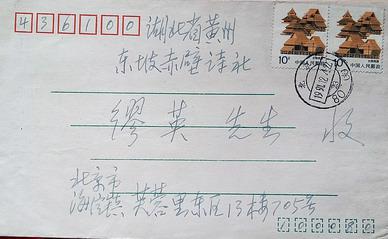 436100
湖北省黄州
东坡赤壁诗社
缪英先生 收
北京市
海淀区芙蓉里东区13楼705号
100080
10分
中国人民邮政
10分
中国人民邮政